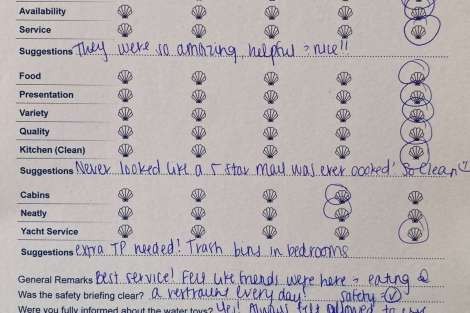 Availability
Service
Suggestions They were so amazing helpful + nice!!
Food
Presentation
Variety
Quality
Kitchen (Clean)
Suggestions Never looked like a 5 star meal was ever cooked! So clean
Cabins
Neatly
Yacht Service
Suggestions extra TP needed! Trash bins in bedrooms
General Remarks Best service! Felt like friends were here + eating @
Was the safety briefing clear? a restraunt every day! safety =
Were you fully informed about the water toys? Yes! Always felt allowed to